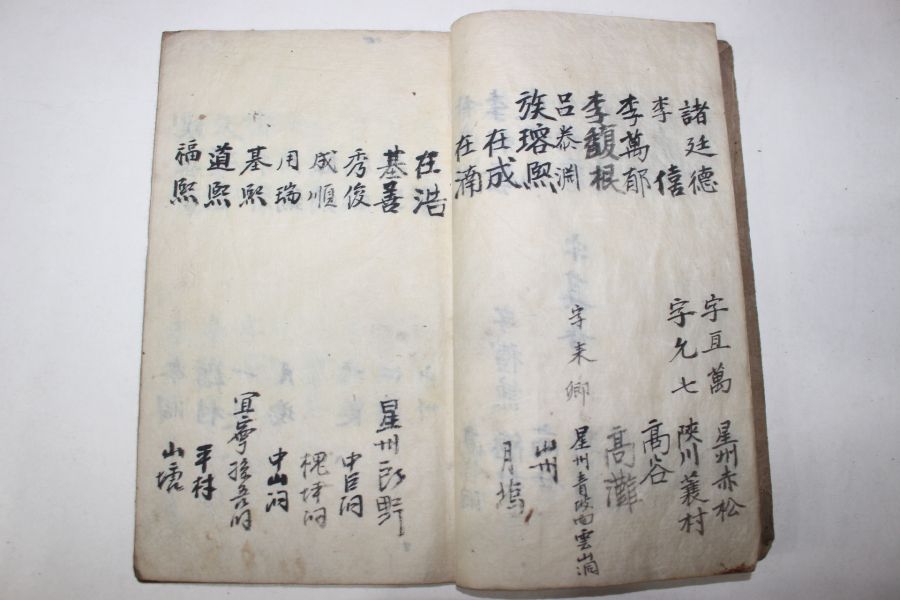 諸廷德 字亘萬 星州赤松
李僖 字允七 陜川蓑村
李萬郁 高谷
李馥根 高灘
呂泰淵 字来卿 星州青坡面雲山洞
族瑢熙 山州
在成 月塢
在湳
在浩
基善 星州
秀俊 中巨洞
成順 槐坪洞
用瑞 中山洞
基熙 宜寧
道熙 平村
福熙